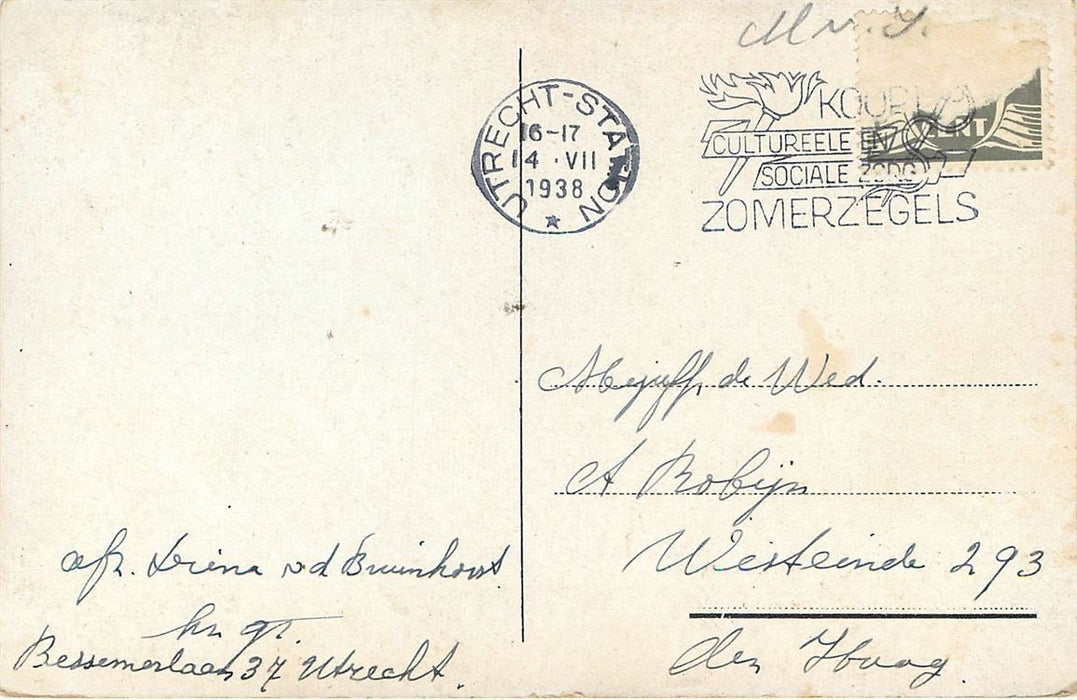 UTRECHT-STATION
16-17
14 · VII
1938
KOOPT
CULTUREELE EN
SOCIALE ZORG
ZOMERZEGELS
CENT
Mejuff. de Wed.
A Robijn
Westeinde 293
den Haag
afz. Driena vd Bruinhorst
Bessemerlaan 37 Utrecht.